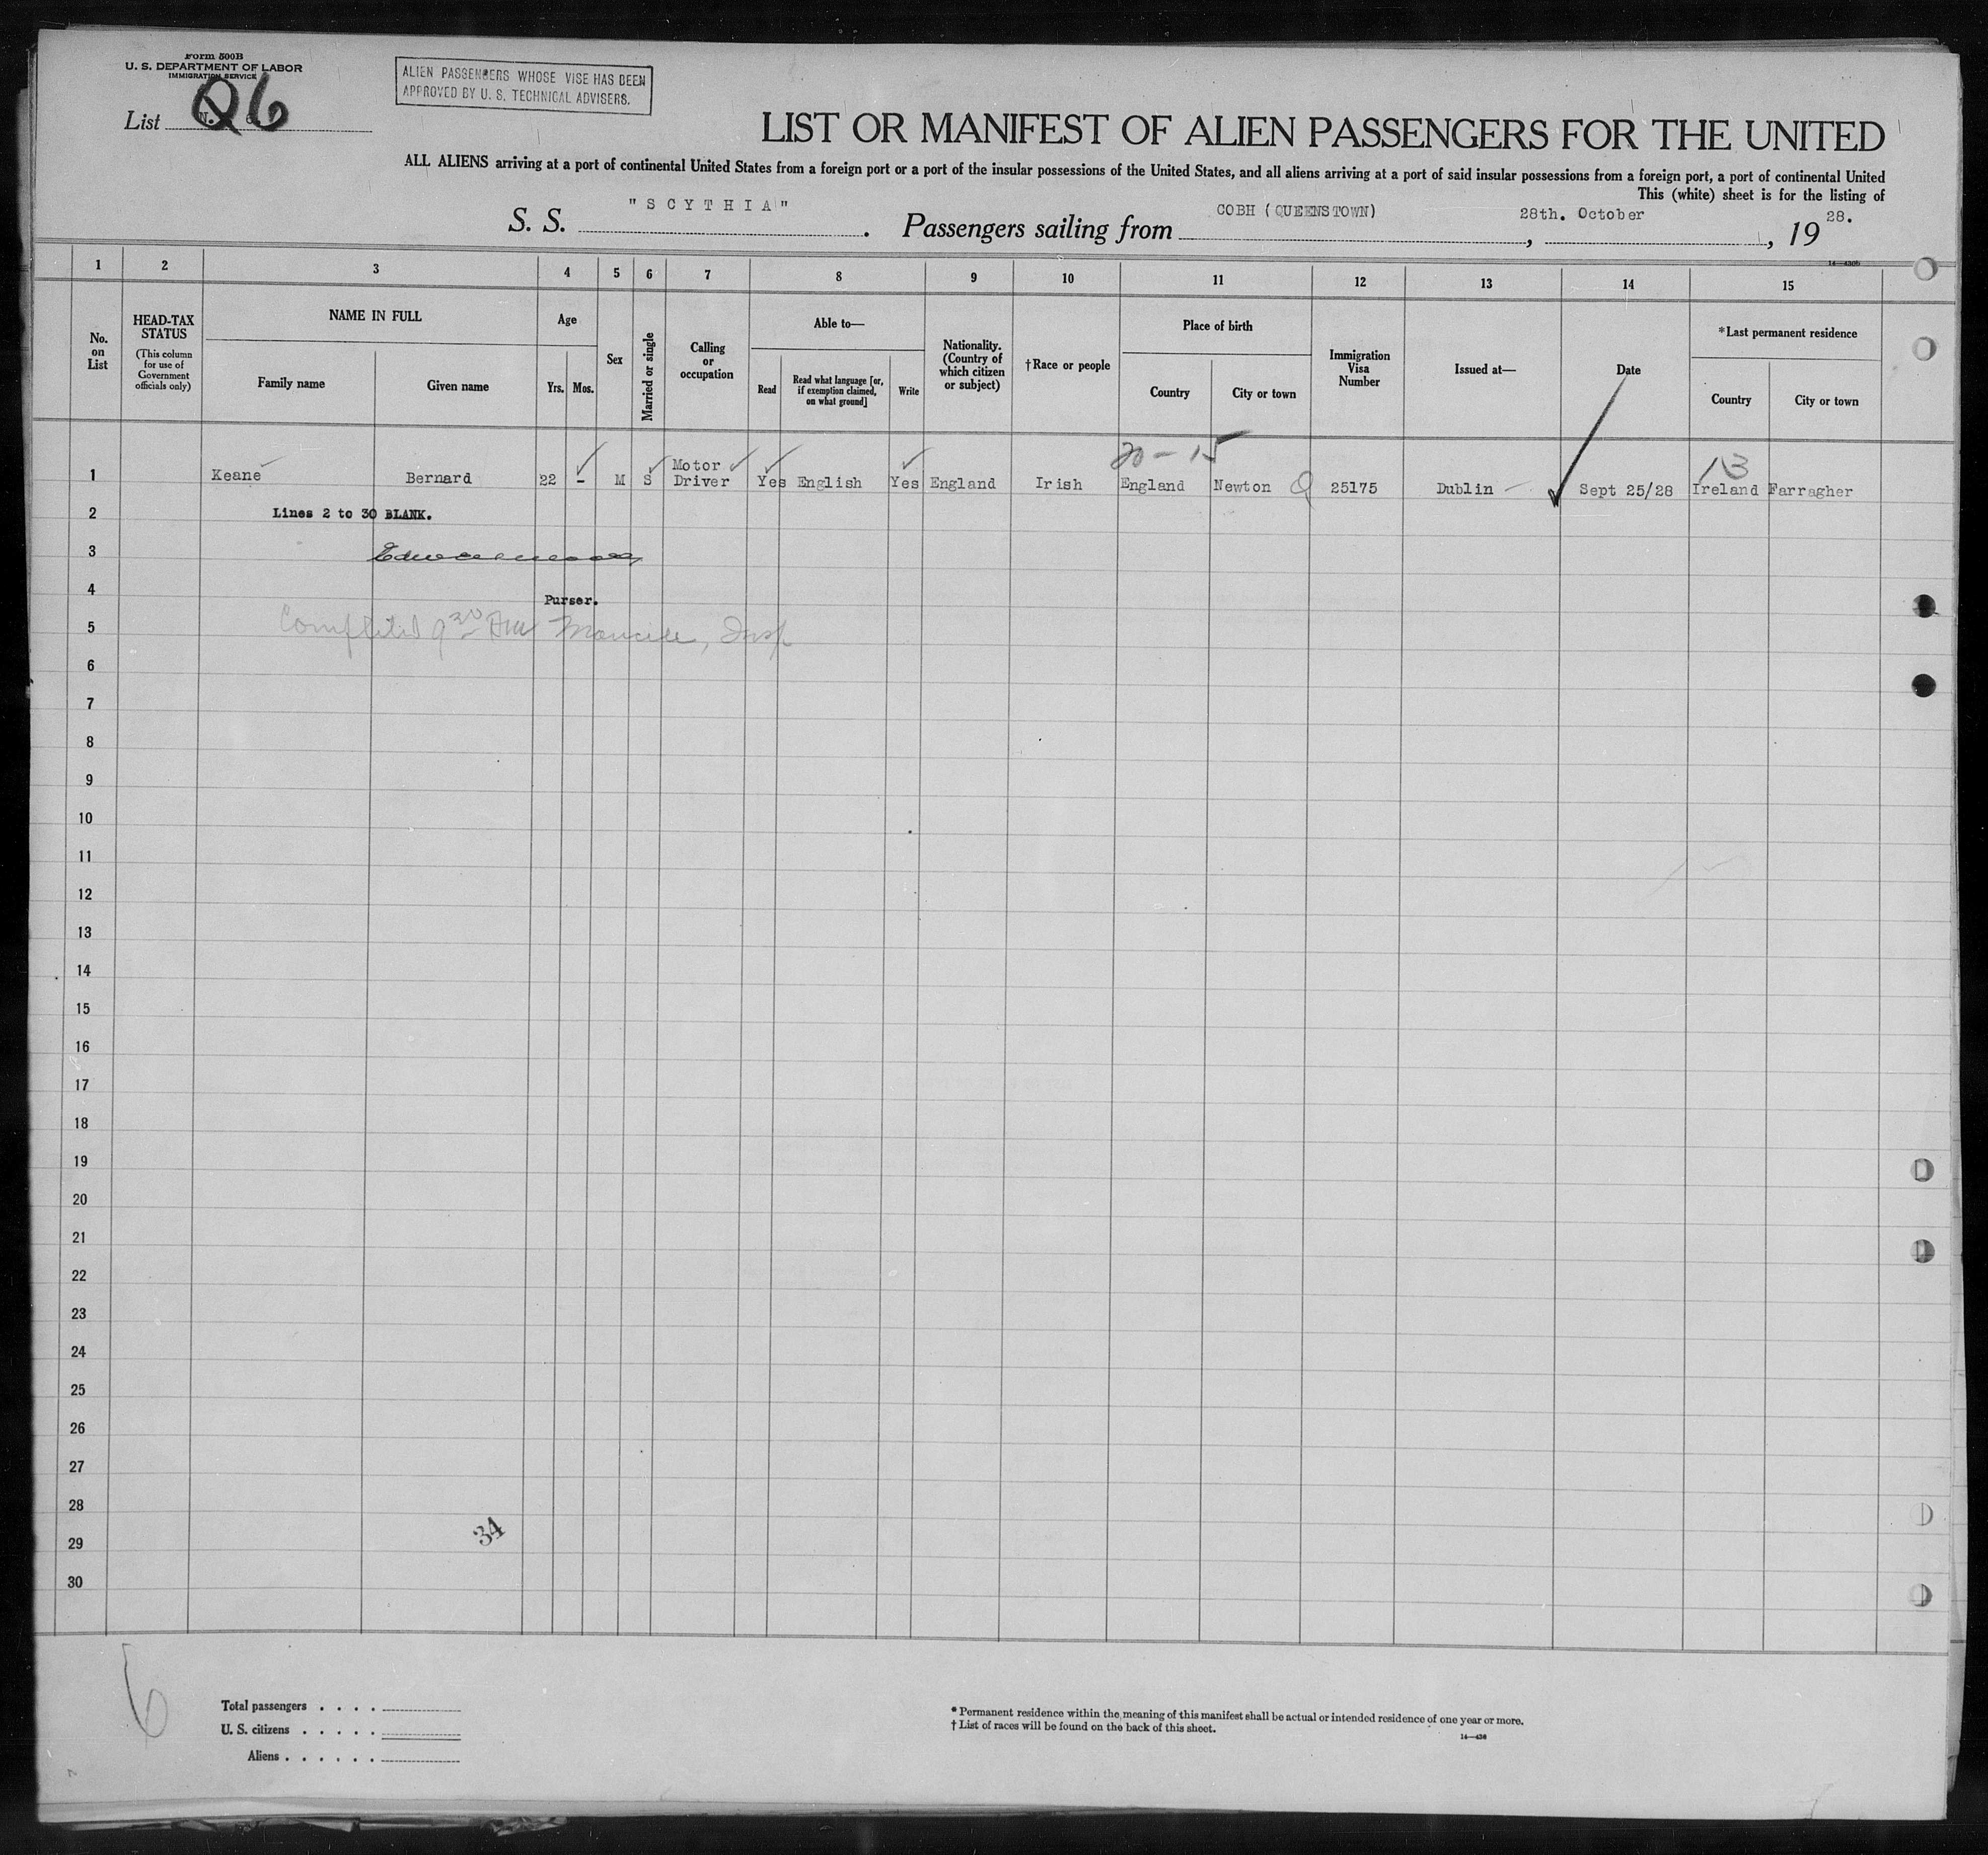 Form 500B
U. S. DEPARTMENT OF LABOR
IMMIGRATION SERVICE
ALIEN PASSENGERS WHOSE VISE HAS BEEN
APPROVED BY U. S. TECHNICAL ADVISERS.
List Q6
LIST OR MANIFEST OF ALIEN PASSENGERS FOR THE UNITED
ALL ALIENS arriving at a port of continental United States from a foreign port or a port of the insular possessions of the United States, and all aliens arriving at a port of said insular possessions from a foreign port, a port of continental United
This (white) sheet is for the listing of
S. S. "SCYTHIA". Passengers sailing from COBH (QUEENSTOWN), 28th. October, 1928.
14—430b
1 2 3 4 5 6 7 8 9 10 11 12 13 14 15
No. on List
HEAD-TAX STATUS
(This column for use of Government officials only)
NAME IN FULL
Family name
Given name
Age
Yrs.
Mos.
Sex
Married or single
Calling or occupation
Able to—
Read
Read what language [or, if exemption claimed, on what ground]
Write
Nationality. (Country of which citizen or subject)
†Race or people
Place of birth
Country
City or town
Immigration Visa Number
Issued at—
Date
*Last permanent residence
Country
City or town
20-15
13
1 Keane Bernard 22 - M S Motor Driver Yes English Yes England Irish England Newton Q 25175 Dublin Sept 25/28 Ireland Farragher
2 Lines 2 to 30 BLANK.
3
4 Purser.
5 Completed 9 30
6
7
8
9
10
11
12
13
14
15
16
17
18
19
20
21
22
23
24
25
26
27
28
34
29
30
6
Total passengers
U. S. citizens
Aliens
* Permanent residence within the meaning of this manifest shall be actual or intended residence of one year or more.
† List of races will be found on the back of this sheet.
14—430